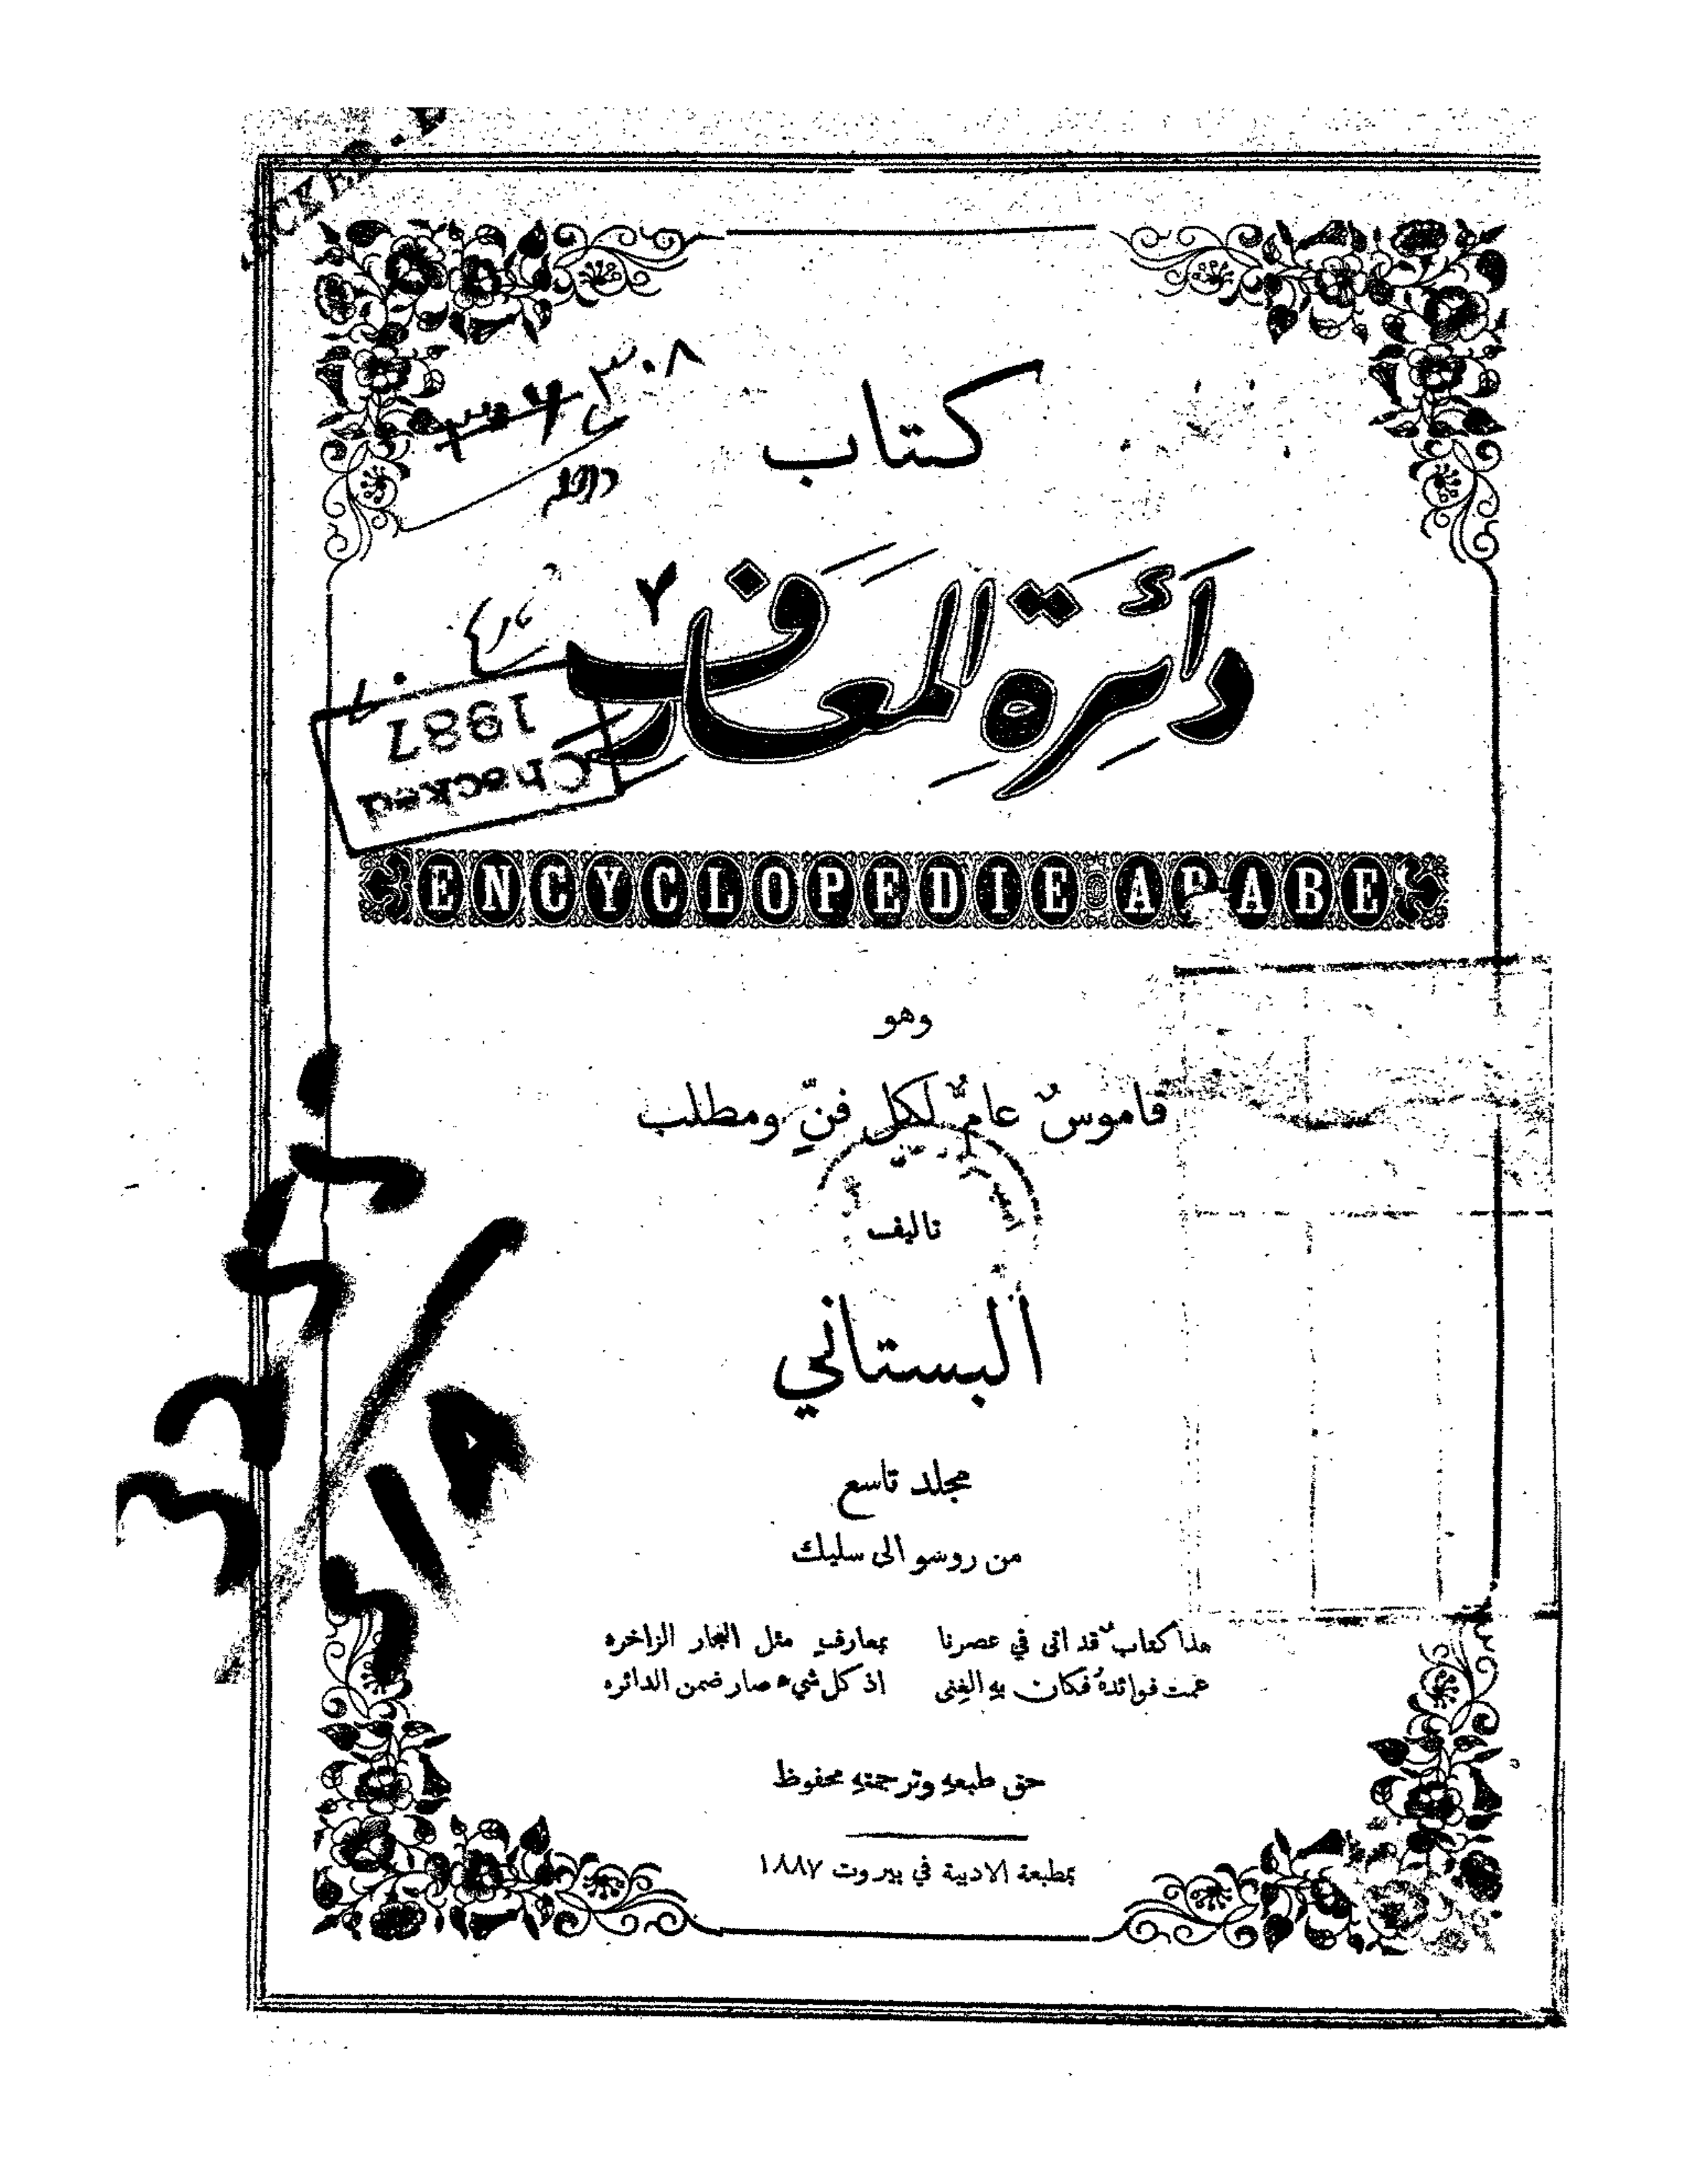 ٣٠٨
كتاب
دَائَرة المعارف
٢
Checked
1987
ENCYCLOPEDIE ARABE
وهو
قاموسٌ عامٌّ لكل فنّ ومطلب
تاليف
ألبستاني
مجلد تاسع
من روسو الى سليك
هذا كتابٌ قد اتى في عصرنا بمعارفٍ مثل البحار الزاخره
عمت فوائدهُ فكان بهِ الغِنى اذ كل شيء صار ضمن الدائره
حق طبعهِ وترجمتهِ محفوظ
بمطبعة الادبية في بيروت ١٨٨٧